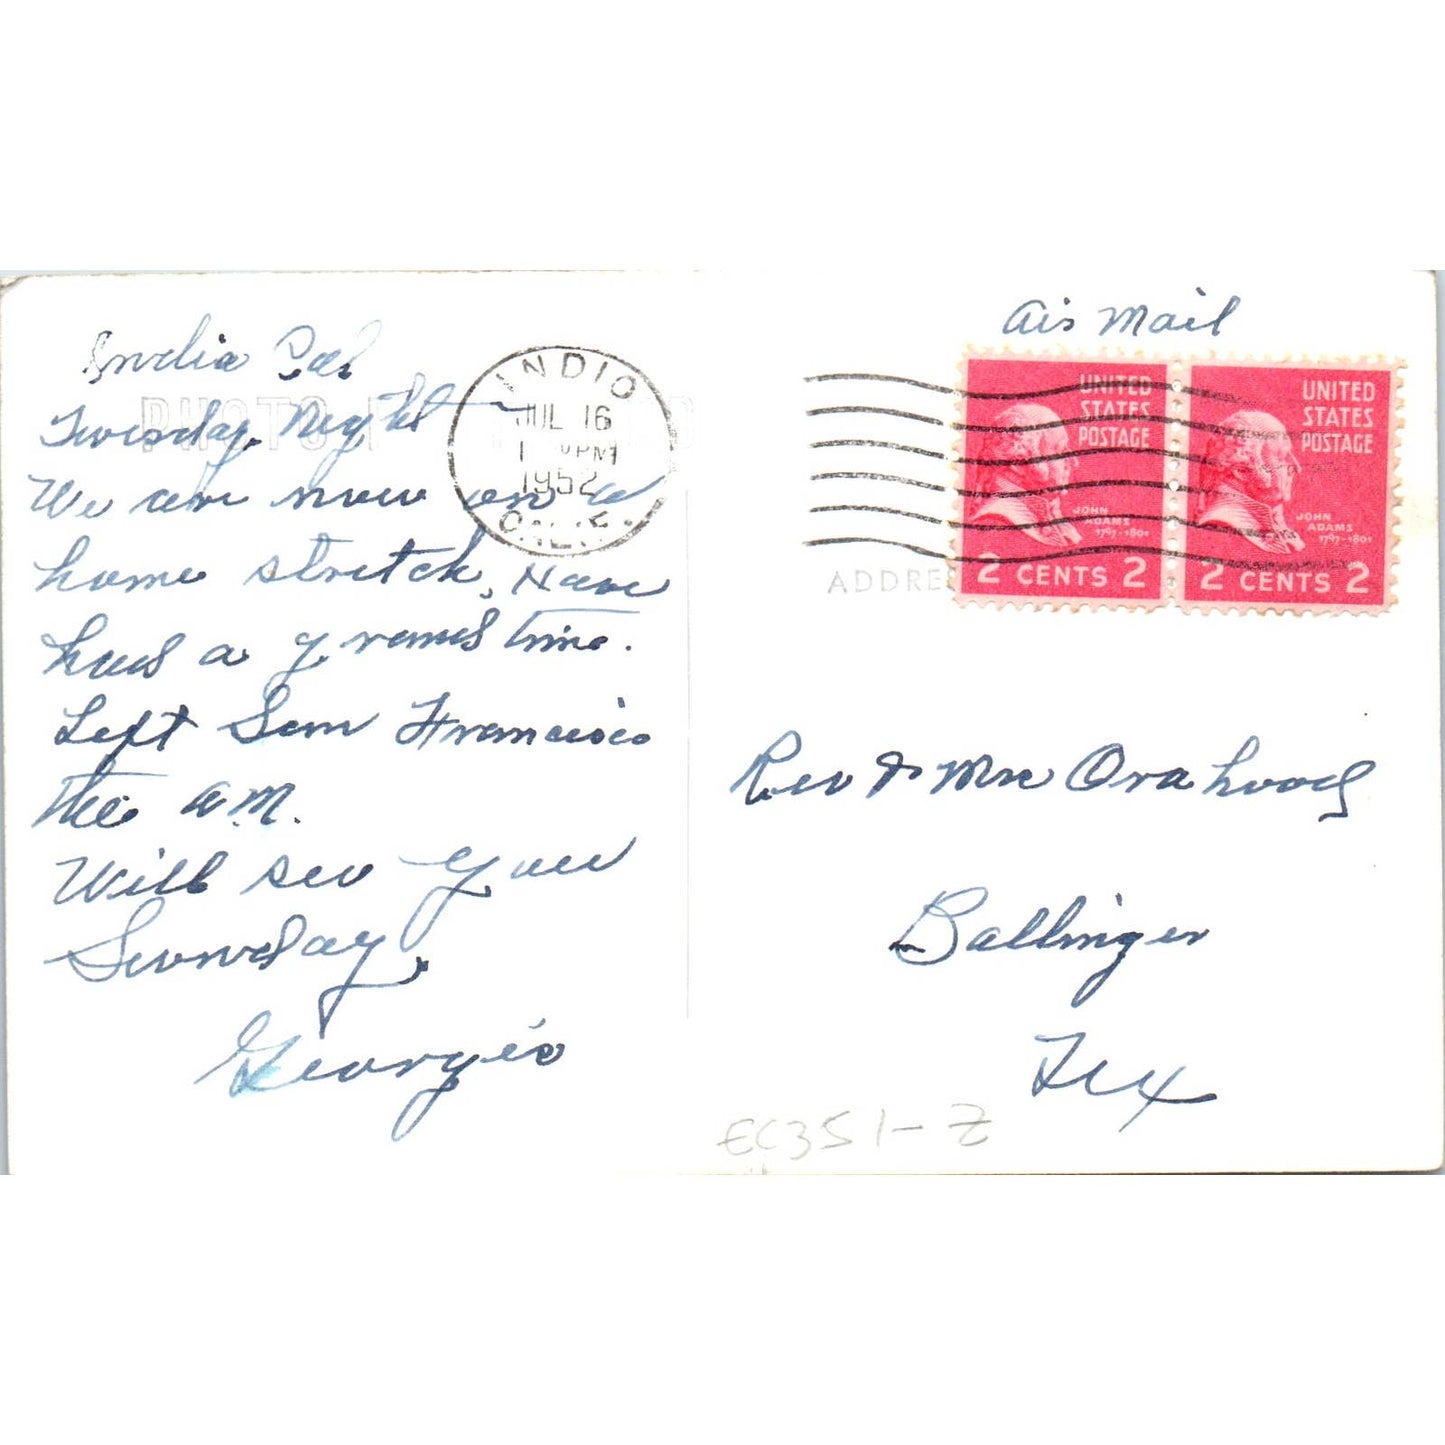 India Cal
Tuesday Night
We are now on a
home stretch, Have
had a grand time.
Left San Francisco
this a.m.
Will see you
Sunday,
Georgie
PHOTO
INDIO
JUL 16
1 PM
1952
CALIF.
Air Mail
UNITED
STATES
POSTAGE
JOHN
ADAMS
1797-1801
2 CENTS 2
UNITED
STATES
POSTAGE
JOHN
ADAMS
1797-1801
2 CENTS 2
ADDRE
Rev & Mrs Ora Hood
Ballinger
Tex
EC351-Z